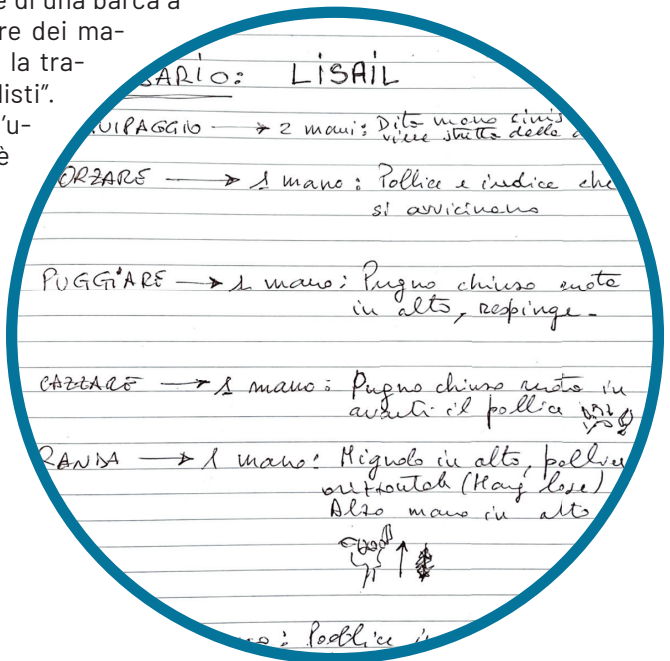 e di una barca a
re dei ma-
la tra-
listi”.
’u-
è
SARIO: LISAIL
UIPAGGIO → 2 mani: Dito mano sinis
viene stretto dalla d
ORZARE → 1 mano: Pollice e indice che
si avvicinano
PUGGIARE → 1 mano: Pugno chiuso ruota
in alto, respinge-
CAZZARE → 1 mano: Pugno chiuso ruota in
avanti il pollice
RANDA → 1 mano: Mignolo in alto, pollice
orizzontale (Hang lose)
Alzo mano in alto
o: Pollice i